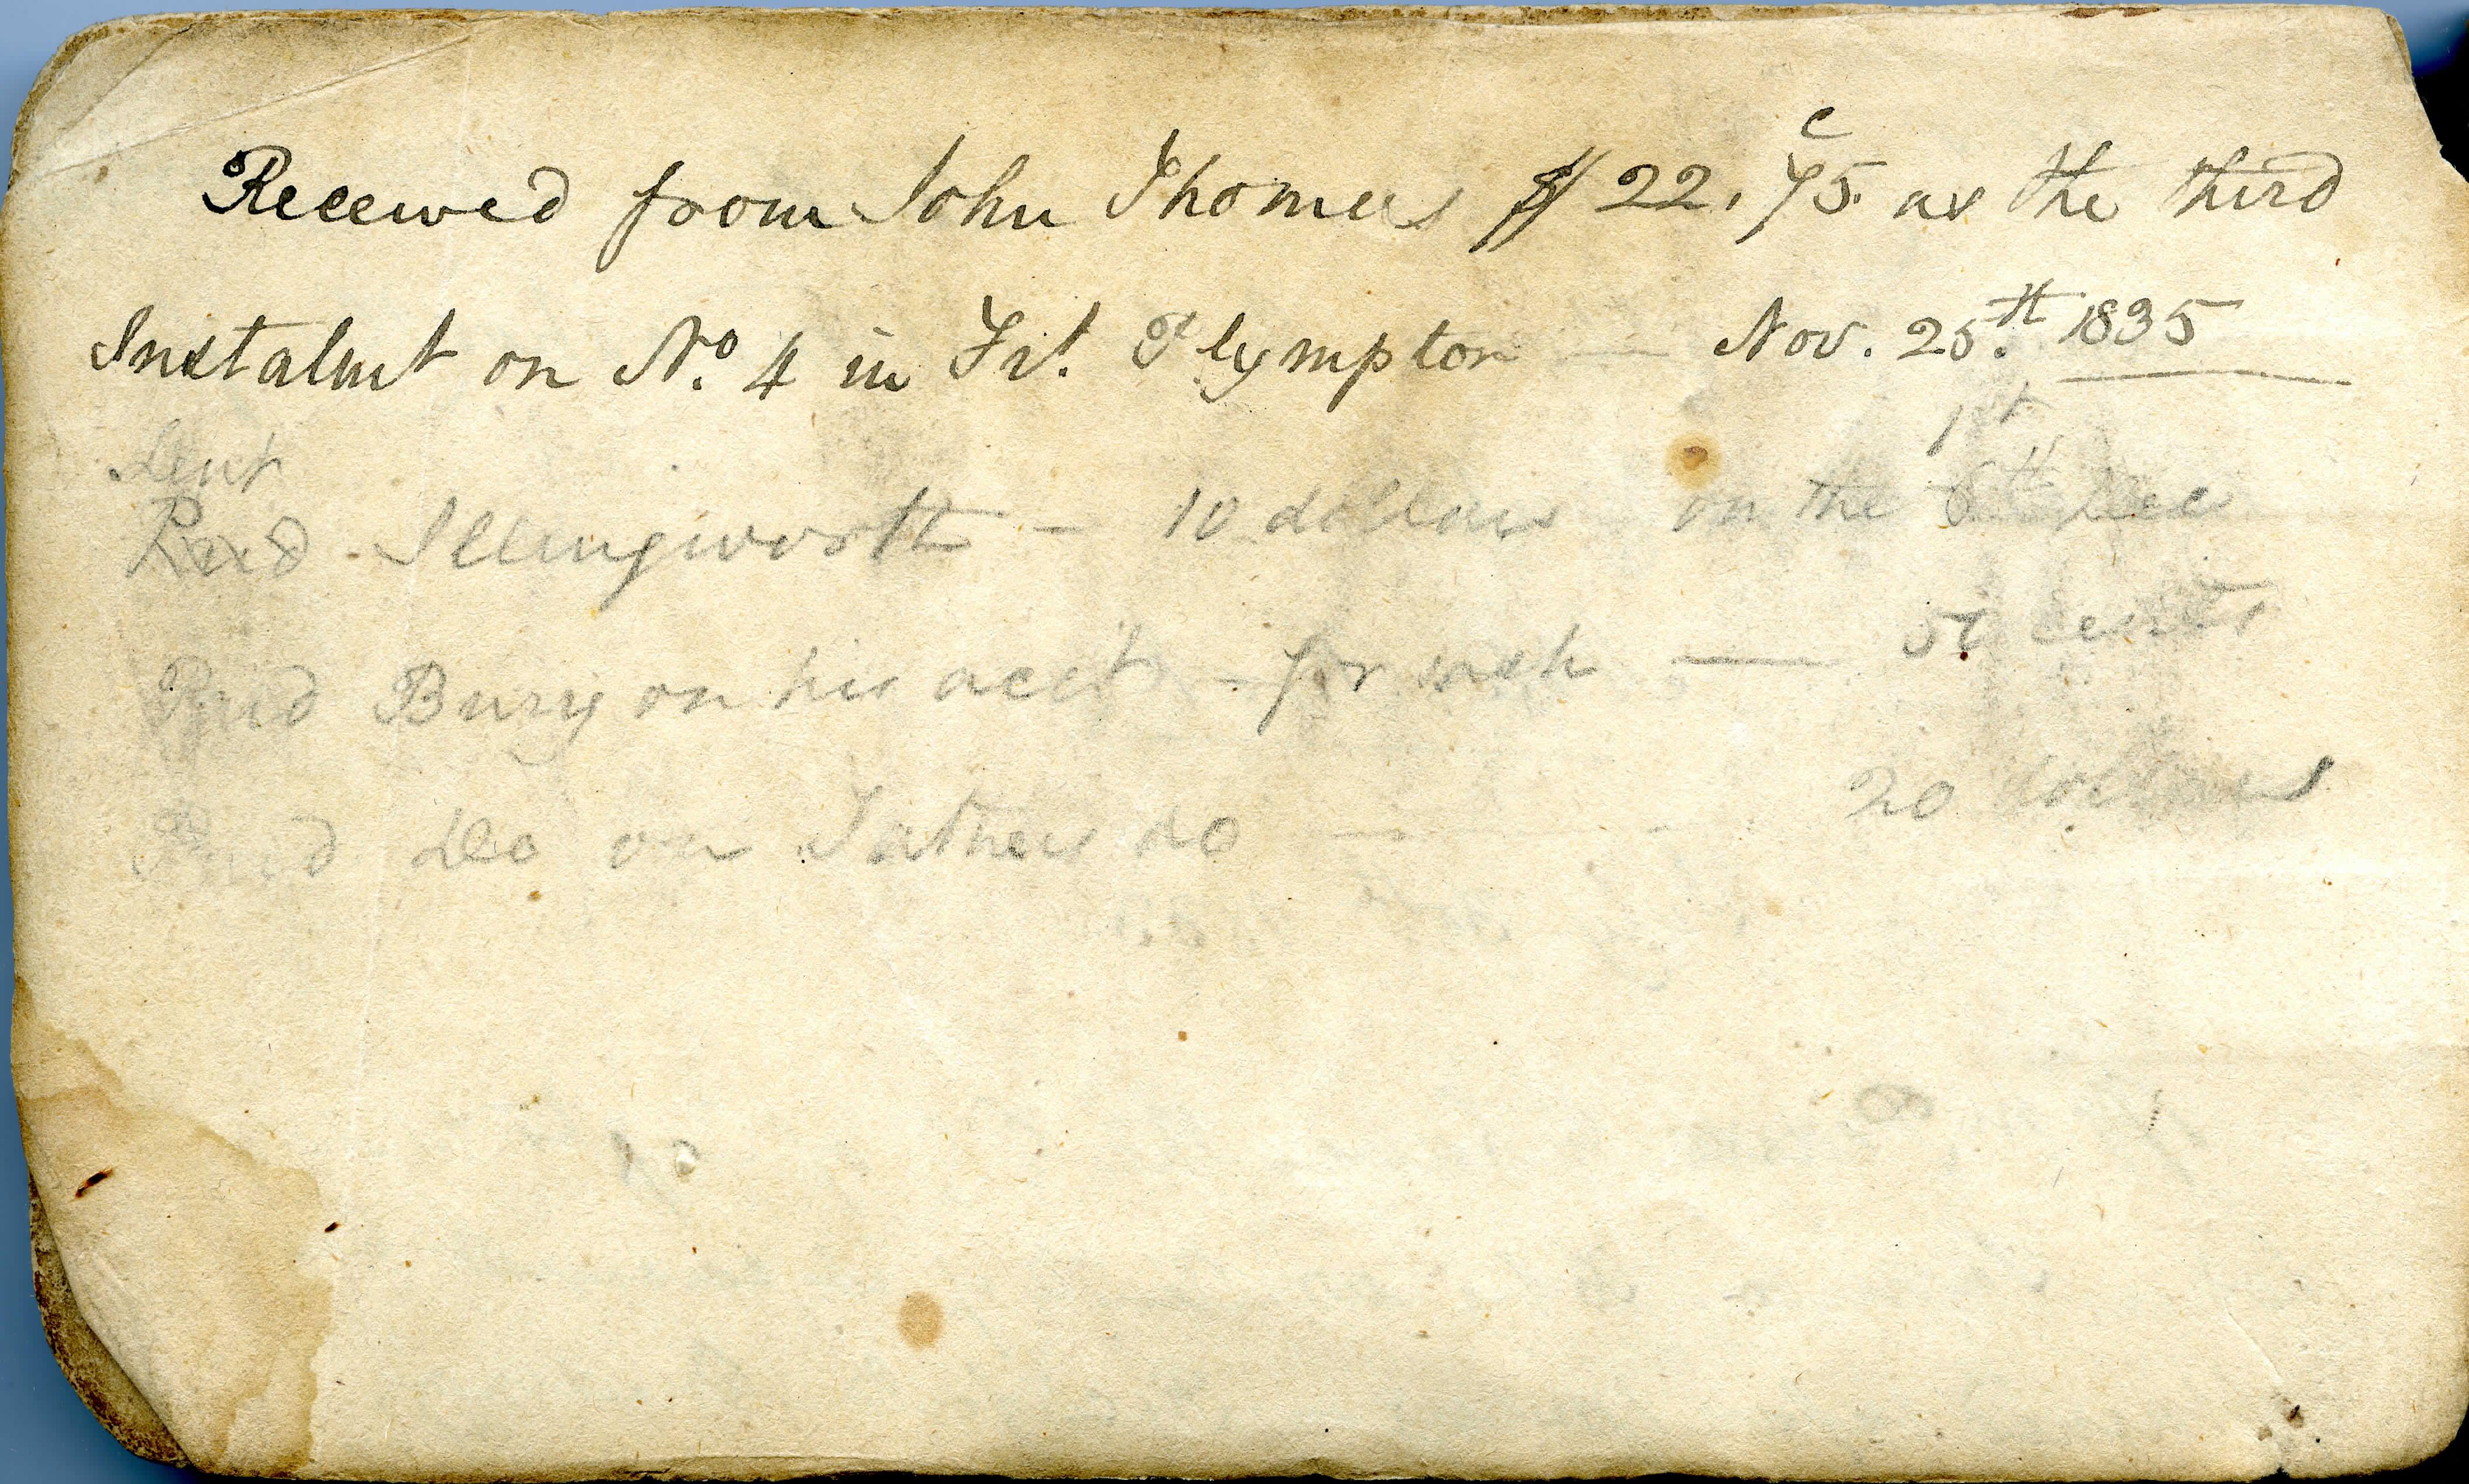 Received from John Thomas $ 22. 75.c as the third
Instalmt on No. 4 in Frt. Plympton — Nov. 25.th 1835
1st
Lent
Paid Illingworth — 10 dollars on the 6th Dec
Paid Bury on his acct — for — cents
Paid Do on Fathers do — 20 dollars